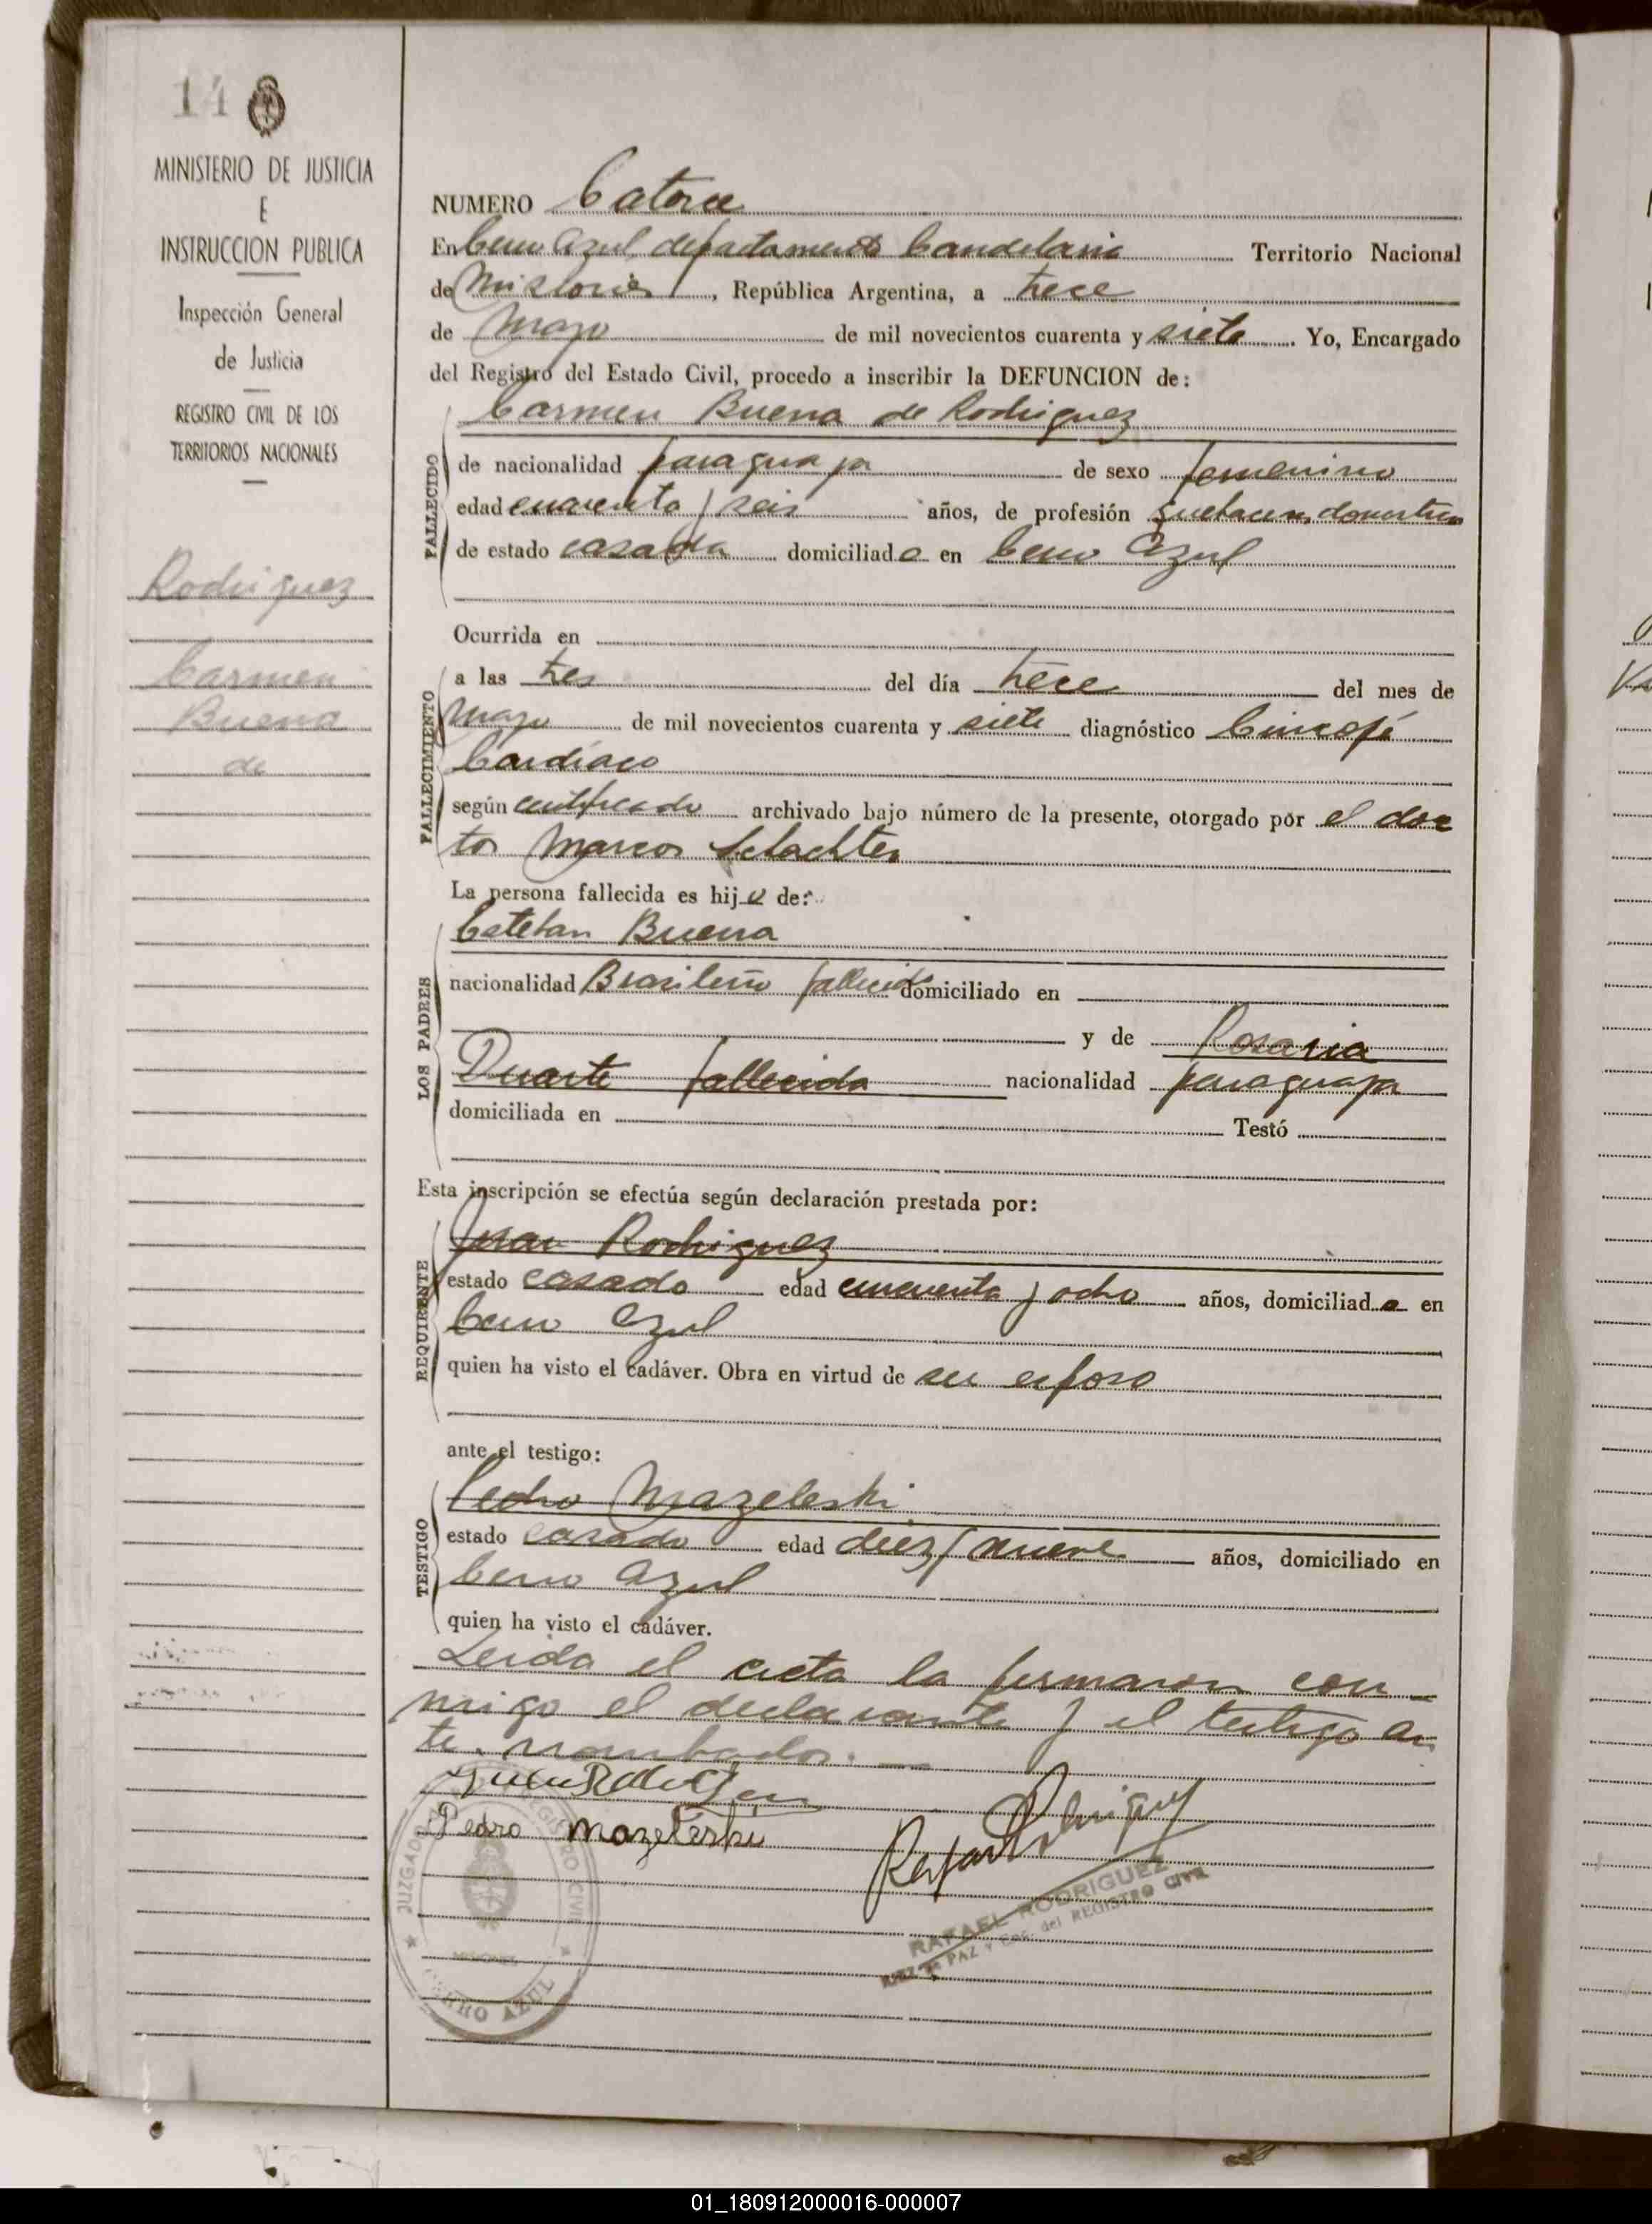 14
MINISTERIO DE JUSTICIA
E
INSTRUCCION PUBLICA
Inspección General
de Justicia
REGISTRO CIVIL DE LOS
TERRITORIOS NACIONALES
Rodriguez
Carmen
Buena
de
NUMERO Catorce
En Cerro Azul, departamento Candelaria Territorio Nacional
de Misiones, República Argentina, a trece
de Mayo de mil novecientos cuarenta y siete. Yo, Encargado
del Registro del Estado Civil, procedo a inscribir la DEFUNCION de:
Carmen Buena de Rodriguez
FALLECIDO
de nacionalidad paraguaya de sexo femenino
edad cuarenta y seis años, de profesión domestica
de estado casada domiciliada en Cerro Azul
Ocurrida en
FALLECIMIENTO
a las tres del día trece del mes de
Mayo de mil novecientos cuarenta y siete diagnóstico
Cardiaco
según certificado archivado bajo número de la presente, otorgado por el doc
tor Marcos Schachter
La persona fallecida es hija de:
LOS PADRES
Esteban Buena
nacionalidad Brasileño fallecido domiciliado en
y de Rosaria
Duarte fallecida nacionalidad paraguaya
domiciliada en Testó
Esta inscripción se efectúa según declaración prestada por:
REQUIRENTE
Juan Rodriguez
estado casado edad cincuenta y ocho años, domiciliado en
Cerro Azul
quien ha visto el cadáver. Obra en virtud de su esposo
ante el testigo:
TESTIGO
Pedro Mazeleski
estado casado edad diez y nueve años, domiciliado en
Cerro Azul
quien ha visto el cadáver.
Leida el acta la firmaron con-
migo el declarante y el testigo an
te nombrados.
Pedro Mazeleski
Rafael Rodriguez
RAFAEL RODRIGUEZ
JUEZ de PAZ y Enc. del REGISTRO CIVIL
JUZGADO REGISTRO CIVIL
MISIONES
CERRO AZUL
01_180912000016-000007